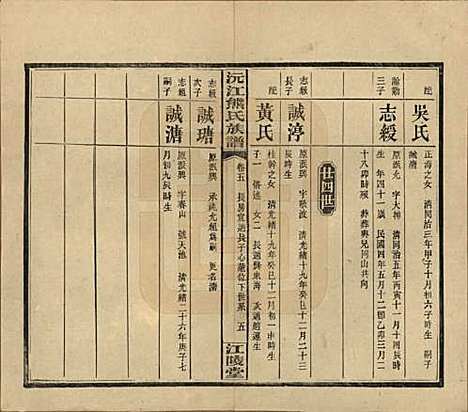 配
吳氏
正海之女 清同治三年甲子十月初六子時生 嗣子
誠濤
瀚勳
三子
志綬
原派先 字大紳 清同治五年丙寅十一月十四辰時
生 年四十一歲 民國四年五月十二卽乙卯三月二
十八卯時歿 葬葬與兄同山共向
廿四世
志綬
長子
誠渟
原派興 字歇波 清光緒十九年癸巳十二月二十三
辰時生
配
黃氏
桂幹之女 清光緒十九年癸巳十一月初一申時生
子一 傳述 女二 長適龔東海 次適趙運生
沅江熊氏族譜
卷五
長房宣週長子心敵位下世系
五
江陵堂
志綬
次子
誠瑭
原派興 承兆允祖爲嗣 更名濤
志綬
嗣子
誠溏
原派興 字春山 號天池 清光緒二十六年庚子七
月初九辰時生